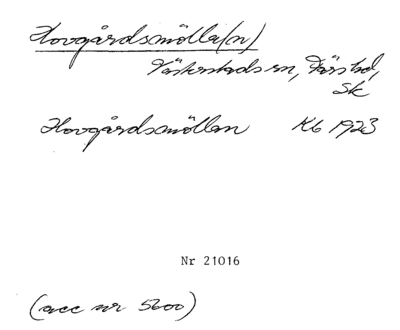 Hovgårdsmölla(n)
Västerstads sn, Färs hd,
Sk
Hovgårdsmöllan Kb 1923
Nr 21016
(acc nr 5600)